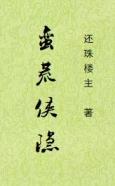 还珠楼主 著
蛮荒侠隐